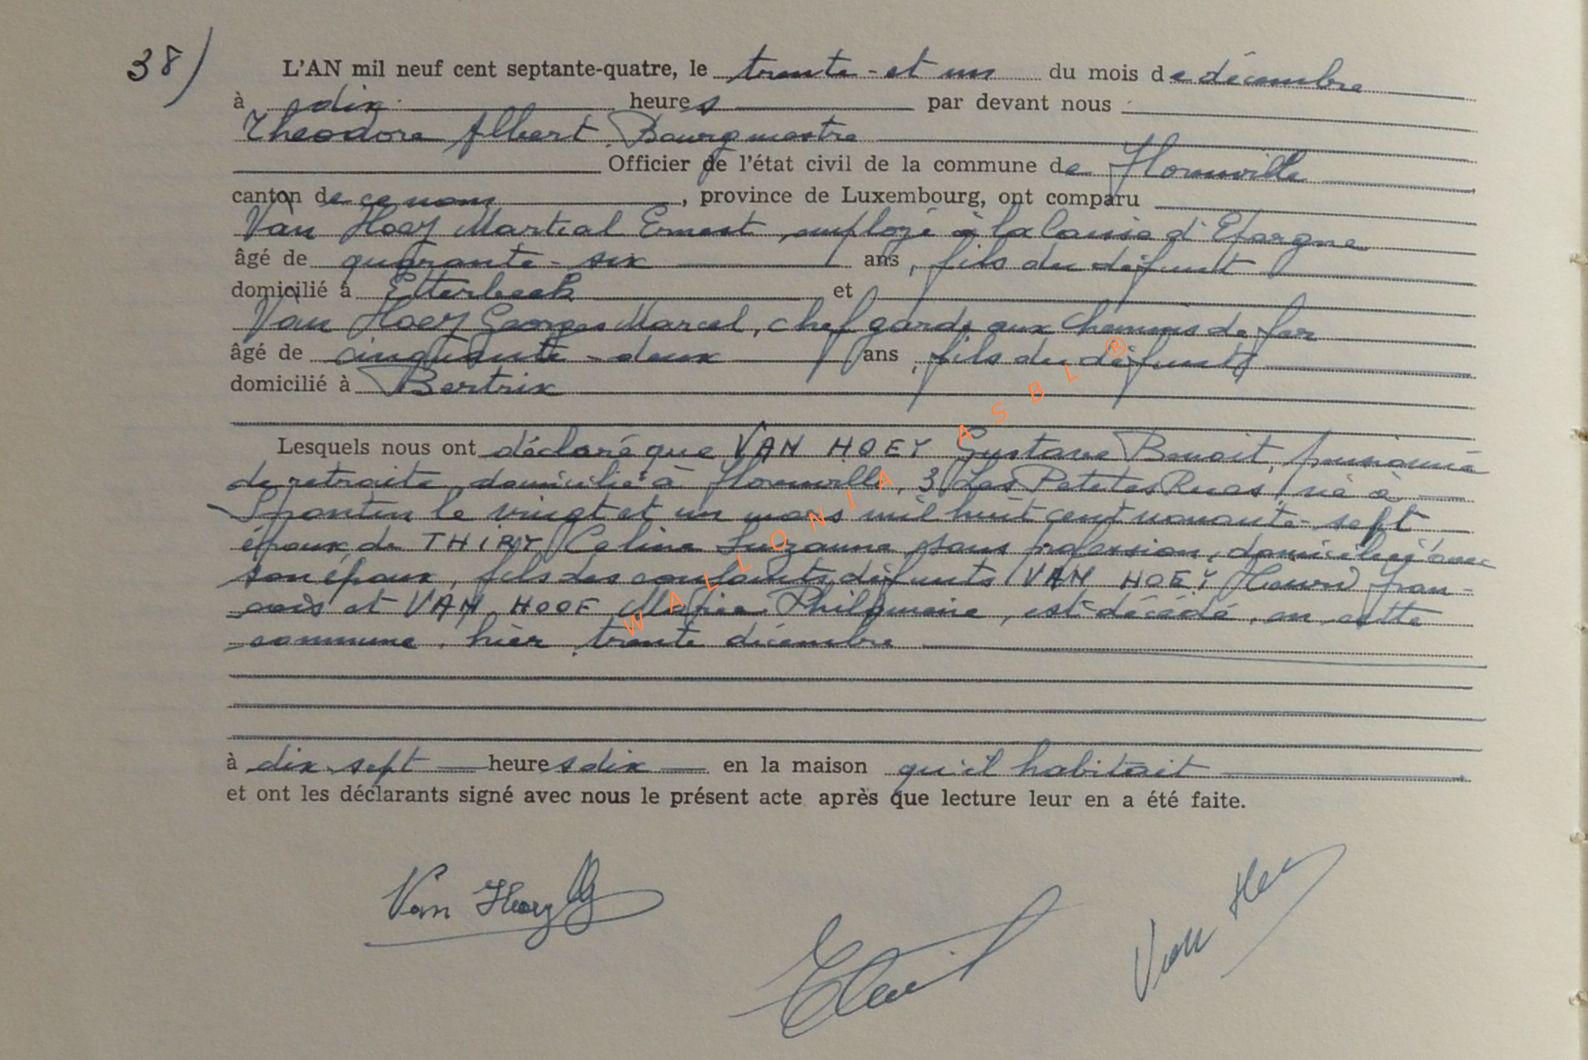 38)
L'AN mil neuf cent septante-quatre, le trente-et un du mois de décembre
à dix heures par devant nous
Théodore Albert, Bourgmestre
Officier de l'état civil de la commune de Florenville
canton de ce nom, province de Luxembourg, ont comparu
Van Hoey Martial Ernest, employé à la Caisse d'Epargne
âgé de quarante-six ans, fils du défunt
domicilié à Etterbeek et
Van Hoey Georges Marcel, chef garde aux Chemins de fer
âgé de cinquante-deux ans, fils du défunt
domicilié à Bertrix
Lesquels nous ont déclaré que VAN HOEY Gustave Benoit, pensionné
de retraite, domicilié à Florenville, 3, Les Petites Rues, né à
Spontin le vingt et un mars mil huit cent nonante-sept
époux de THIRY Celina Suzanne, sans profession, domiciliée avec
son époux, fils des conjoints défunts VAN HOEY Henri Fran-
çois et VAN HOOF Philomène, est décédé, en cette
commune, hier, trente décembre
à dix sept heures dix en la maison qu'il habitait
et ont les déclarants signé avec nous le présent acte après que lecture leur en a été faite.
Van Hoey
Van Hoey
WALLONIA ASBL ®